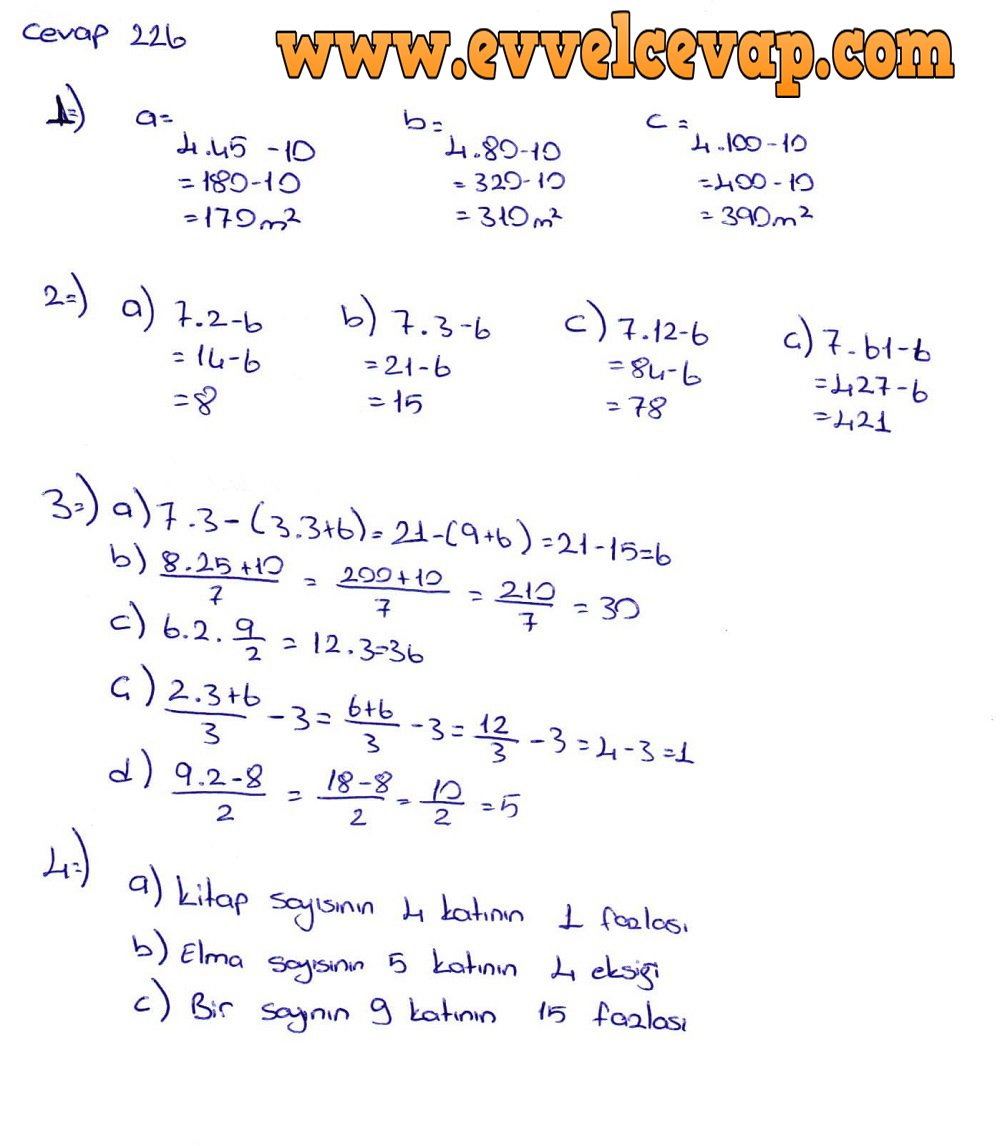 Cevap 226
www.evvelcevap.com
1=) a= 4.45 -10
= 180-10
= 170 m²
b= 4.80-10
= 320-10
= 310 m²
c = 4.100-10
= 400-10
= 390 m²
2=) a) 7.2-6
= 14-6
= 8
b) 7.3-6
= 21-6
= 15
c) 7.12-6
= 84-6
= 78
ç) 7.61-6
= 427-6
= 421
3=) a) 7.3-(3.3+6) = 21-(9+6) = 21-15=6
b) (8.25+10)/7 = (200+10)/7 = 210/7 = 30
c) 6.2.9/2 = 12.3=36
ç) (2.3+6)/3 - 3 = (6+6)/3 - 3 = 12/3 - 3 = 4-3=1
d) (9.2-8)/2 = (18-8)/2 = 10/2 = 5
4=)
a) Kitap sayısının 4 katının 1 fazlası
b) Elma sayısinin 5 katının 4 eksiği
c) Bir saynın 9 katının 15 fazlası